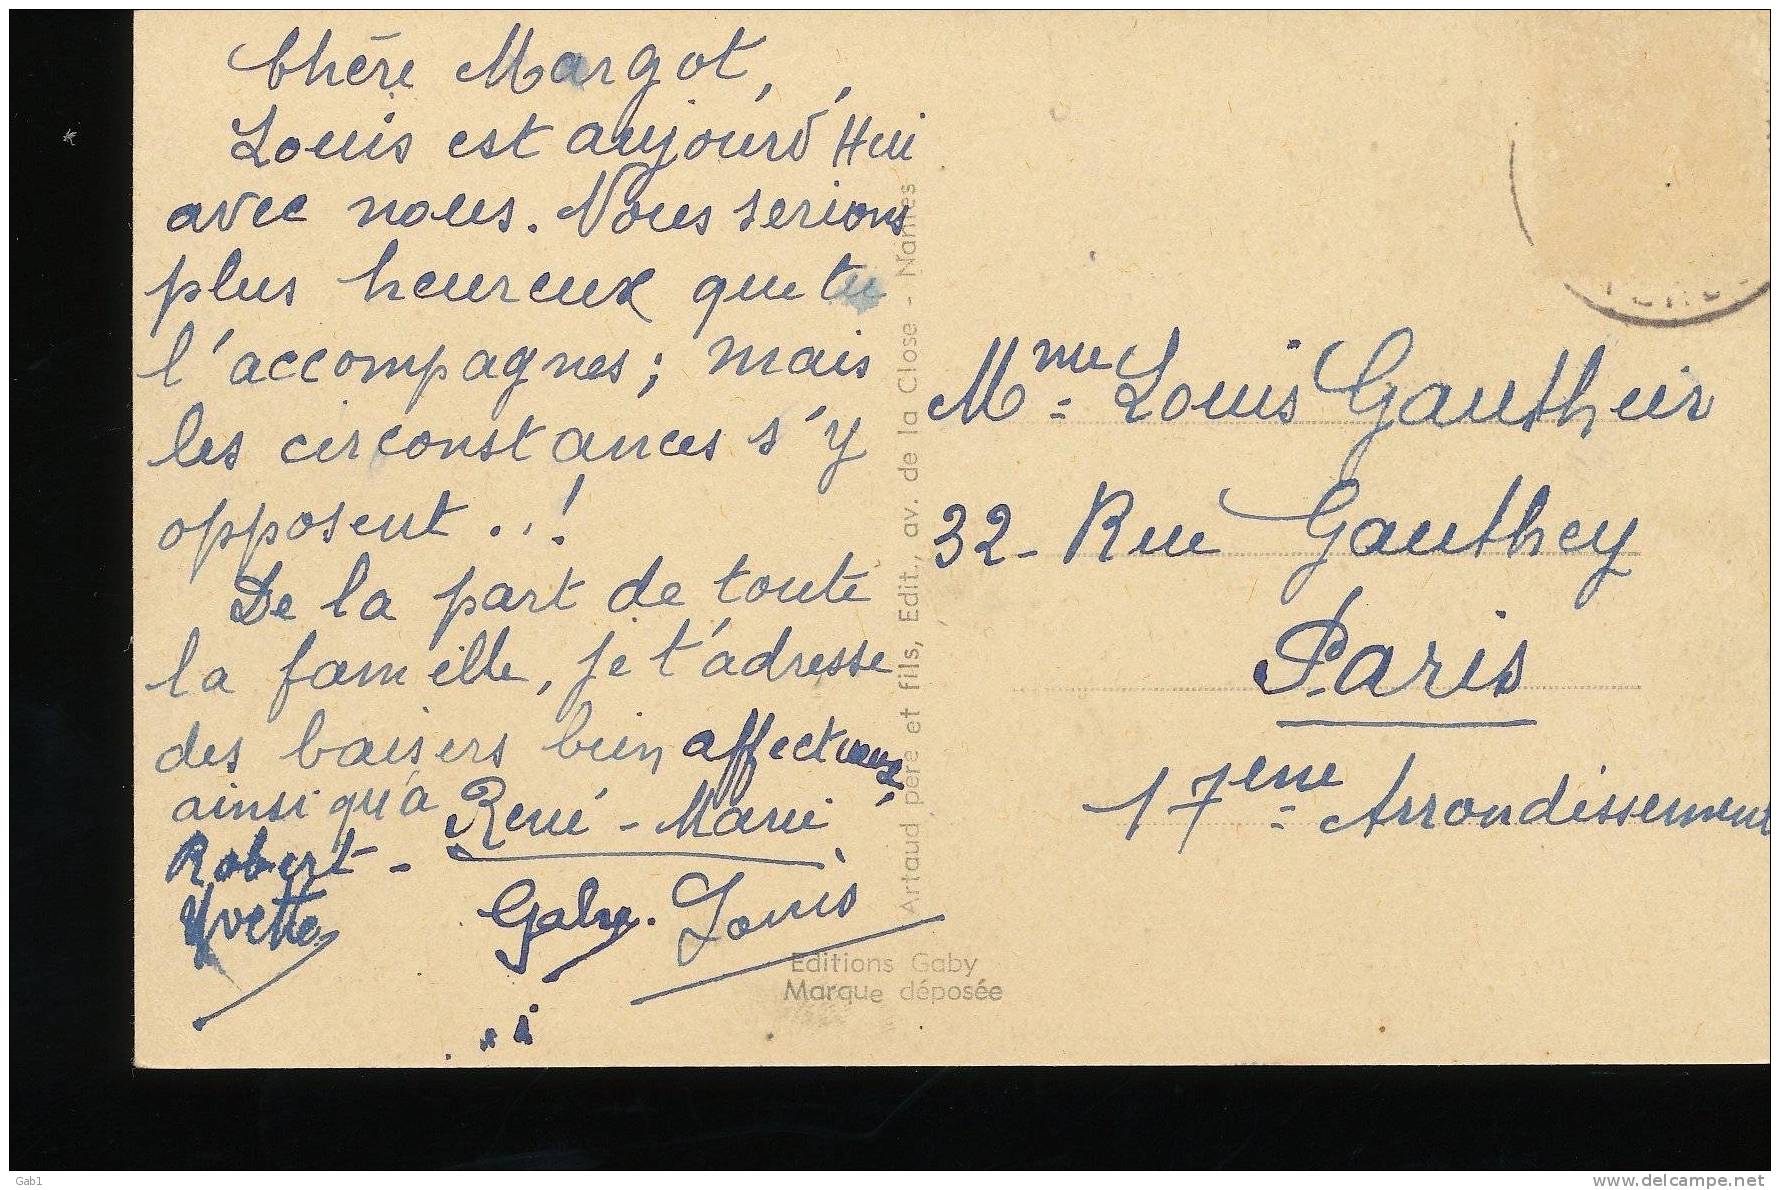 Chère Margot,
Louis est aujourd'Hui
avec nous. Nous serions
plus heureux que tu
l'accompagnes; mais
les circonstances s'y
opposent..!
De la part de toute
la famille, je t'adresse
des baisers bien affectueux
ainsi qu'à René-Marie
Robert -
Yvette
Gaby. Louis
Mme Louis Gauthier
32- Rue Gauthey
Paris
17ème Arrondissement
Artaud père et fils, Edit., av. de la Close - Nantes
Editions Gaby
Marque déposée
Gab1
www.delcampe.net